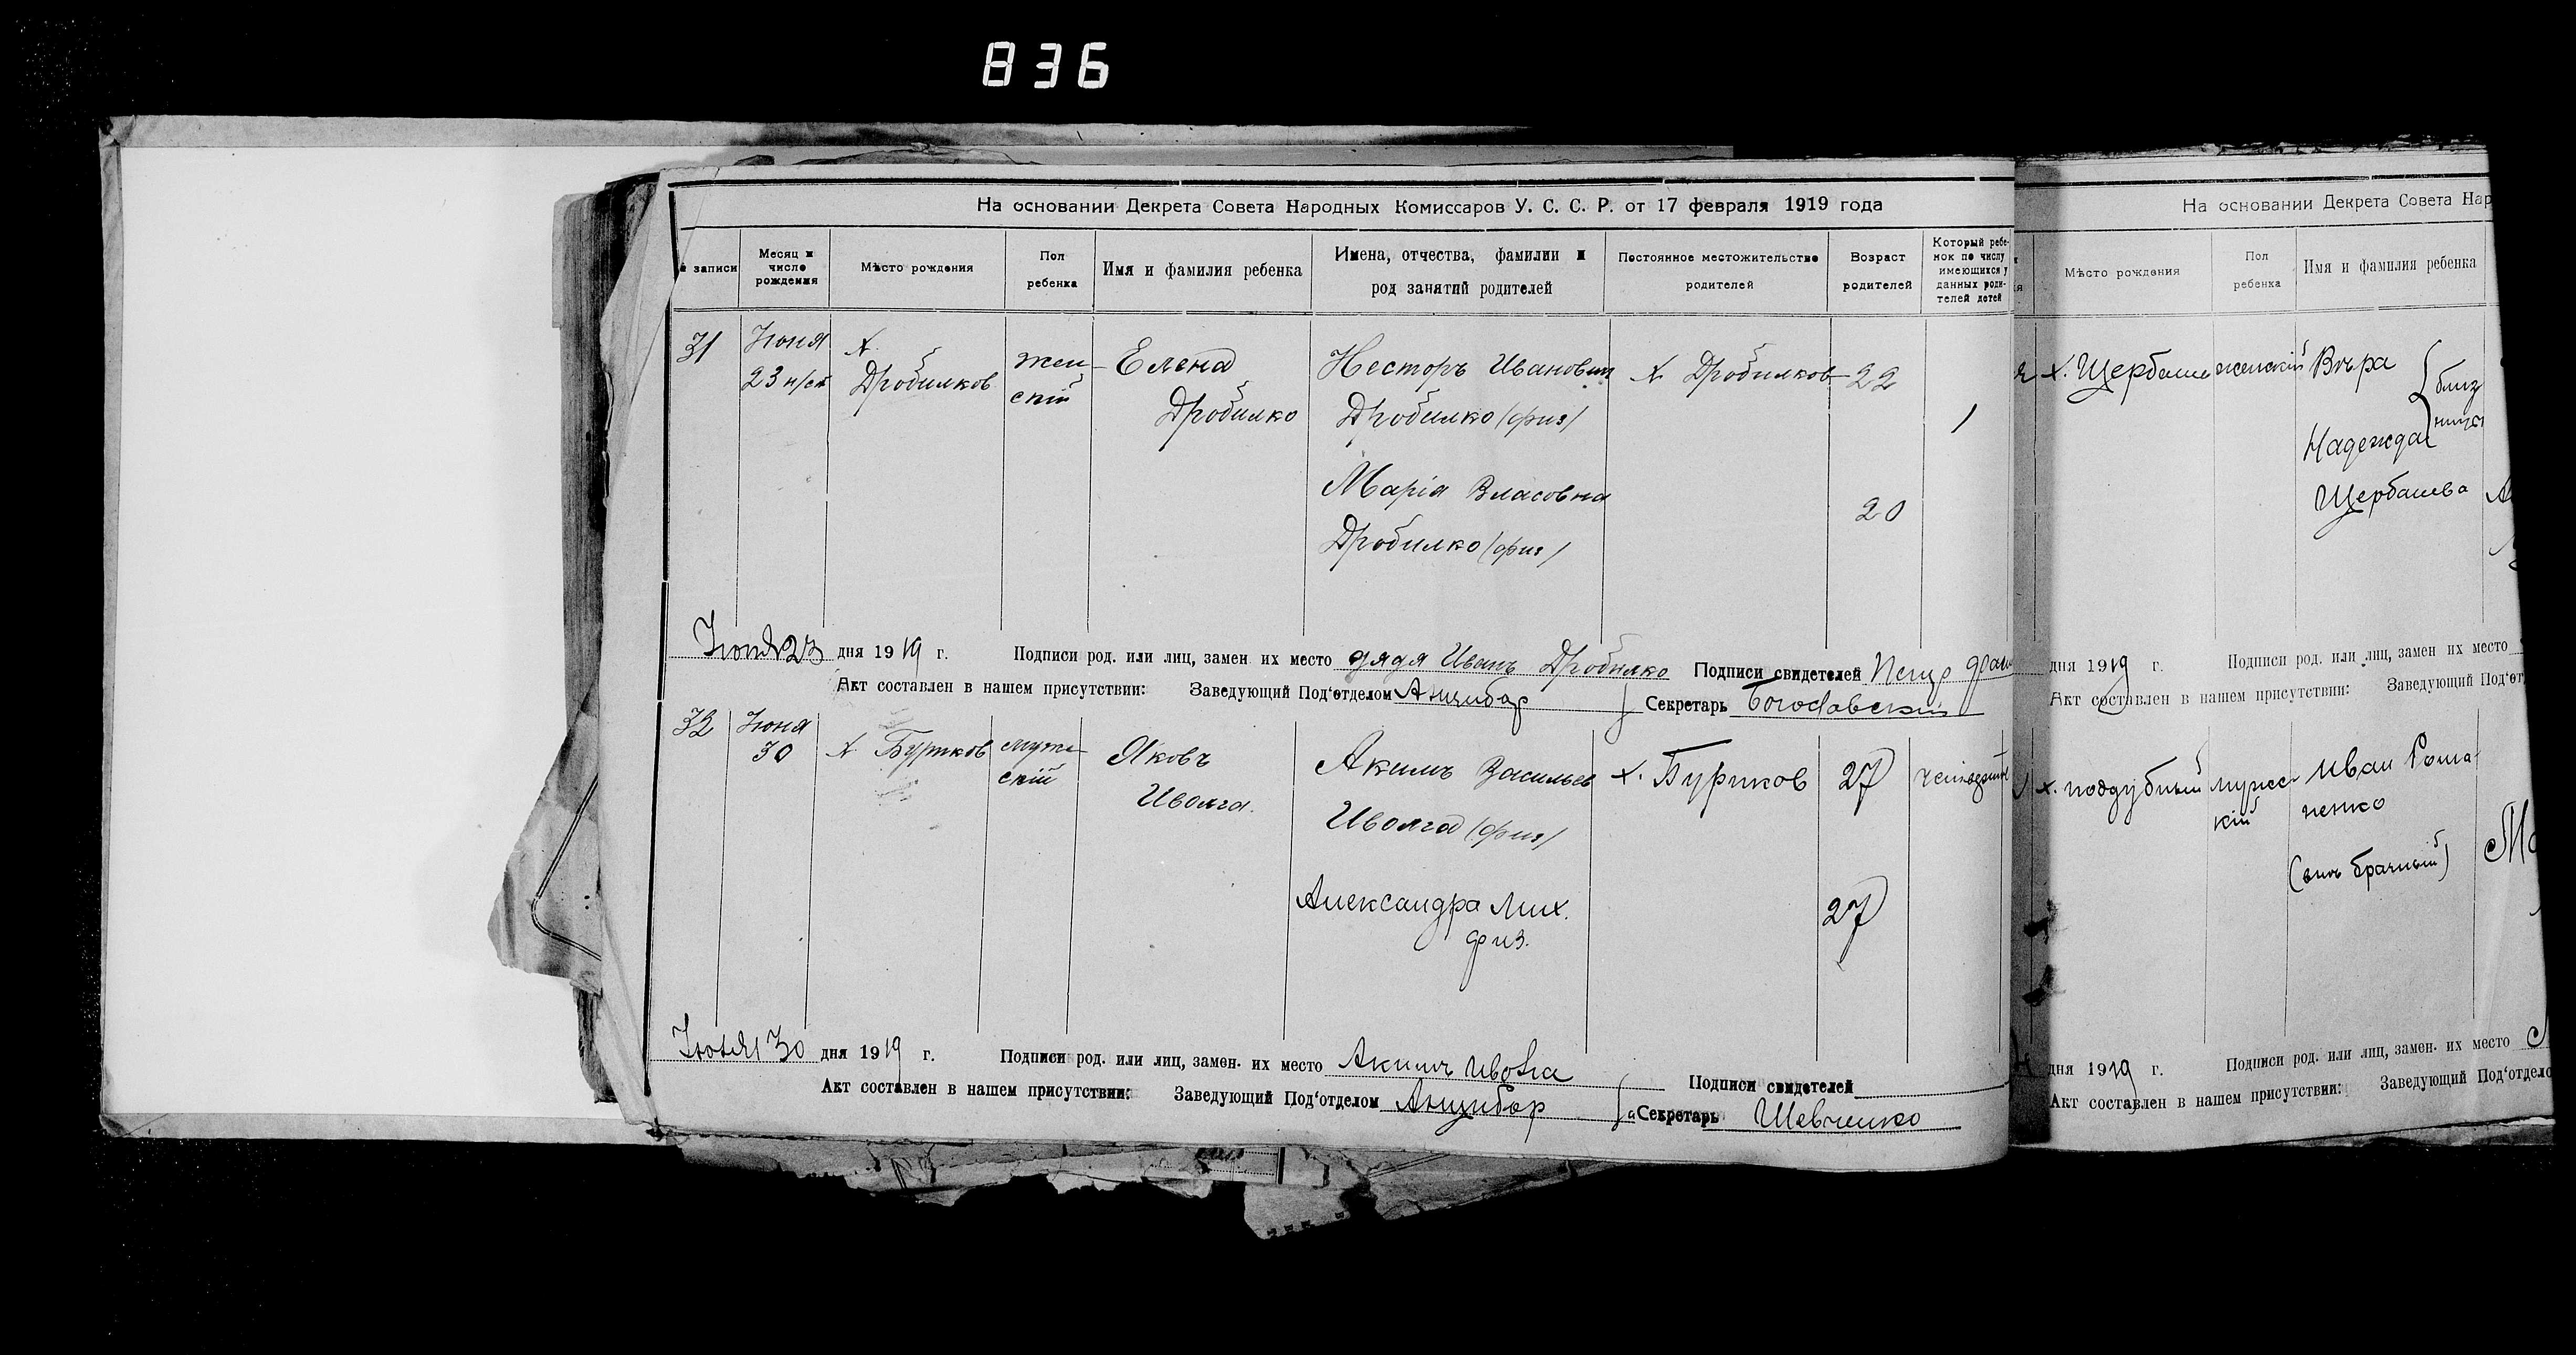 836
На основании Декрета Совета Народных Комиссаров У. С. С. Р. от 17 февраля 1919 года
записи
Месяц и число рождения
Мѣсто рождения
Пол ребенка
Имя и фамилия ребенка
Имена, отчества, фамилии и род занятий родителей
Постоянное местожительство родителей
Возраст родителей
Который ребенок по числу имеющихся у данных родителей детей
31
Июня
23 н/ст
х.
Дробилков
жен-
скій
Елена
Дробилко
Несторъ Иванович
Дробилко (физ)
Марія Власовна
Дробилко (физ)
х. Дробилков
22
20
1
Июня 23 дня 1919 г. Подписи род. или лиц, замен их место дядя Иванъ Дробилко Подписи свидетелей Петр
Акт составлен в нашем присутствии: Заведующий Под'отделом Анцибор Секретарь Богославскій
32
Июня
30
х. Буриков
муже-
скій
Яковъ
Иволга.
Акимъ Васильев
Иволга (физ)
Александра Мих.
физ.
х. Буриков
27
27
Июня 30 дня 1919 г. Подписи род. или лиц, замен. их место Акимъ Иволга Подписи свидетелей
Акт составлен в нашем присутствии: Заведующий Под'отделом Анцибор Секретарь Шевченко
На основании Декрета Совета Нар
Мѣсто рождения
Пол ребенка
Имя и фамилия ребенка
х. Щербаше
женскій
Вѣра
Надежда
близ
ницы
Щербашева
дня 1919 г. Подписи род. или лиц, замен их место
Акт составлен в нашем присутствии: Заведующий Под'от
х. поддубный
мужес
кій
Иван Рома
ненко
(внѣ брачный)
дня 1919 г. Подписи род. или лиц, замен. их место
Акт составлен в нашем присутствии: Заведующий Под'отдело